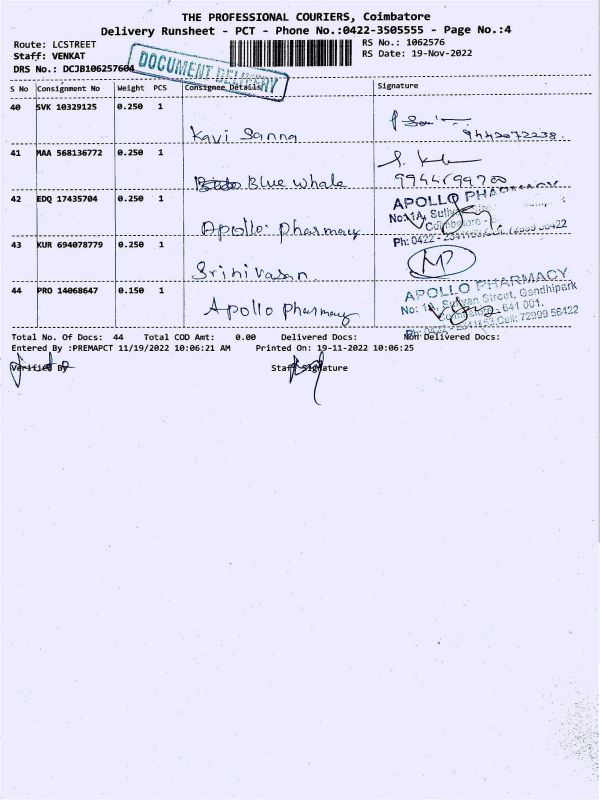 THE PROFESSIONAL COURIERS, Coimbatore
Delivery Runsheet - PCT - Phone No.:0422-3505555 - Page No.:4
Route: LCSTREET
RS No.: 1062576
Staff: VENKAT
RS Date: 19-Nov-2022
DRS No.: DCJB106257604
DOCUMENT DELIVERY
S No Consignment No Weight PCS Consignee Details Signature
40 SVK 10329125 0.250 1
Kavi Sanna
9442072238.
41 MAA 568136772 0.250 1
Blue Whale
42 EDQ 17435704 0.250 1
APOLLO PHARMACY
No: 1A,
Coimbatore
Ph: 0422 - 2541153, Cell: 72999 56422
Apollo pharmacy
43 KUR 694078779 0.250 1
Srinivasan
44 PRO 14068647 0.150 1
APOLLO PHARMACY
No: 1A, Street, Gandhipark
641 001.
Ph: 0422 - 2541153 Cell: 72999 56422
Apollo pharmacy
Total No. Of Docs: 44 Total COD Amt: 0.00 Delivered Docs: Non Delivered Docs:
Entered By :PREMAPCT 11/19/2022 10:06:21 AM Printed On: 19-11-2022 10:06:25
Verified By Staff Signature